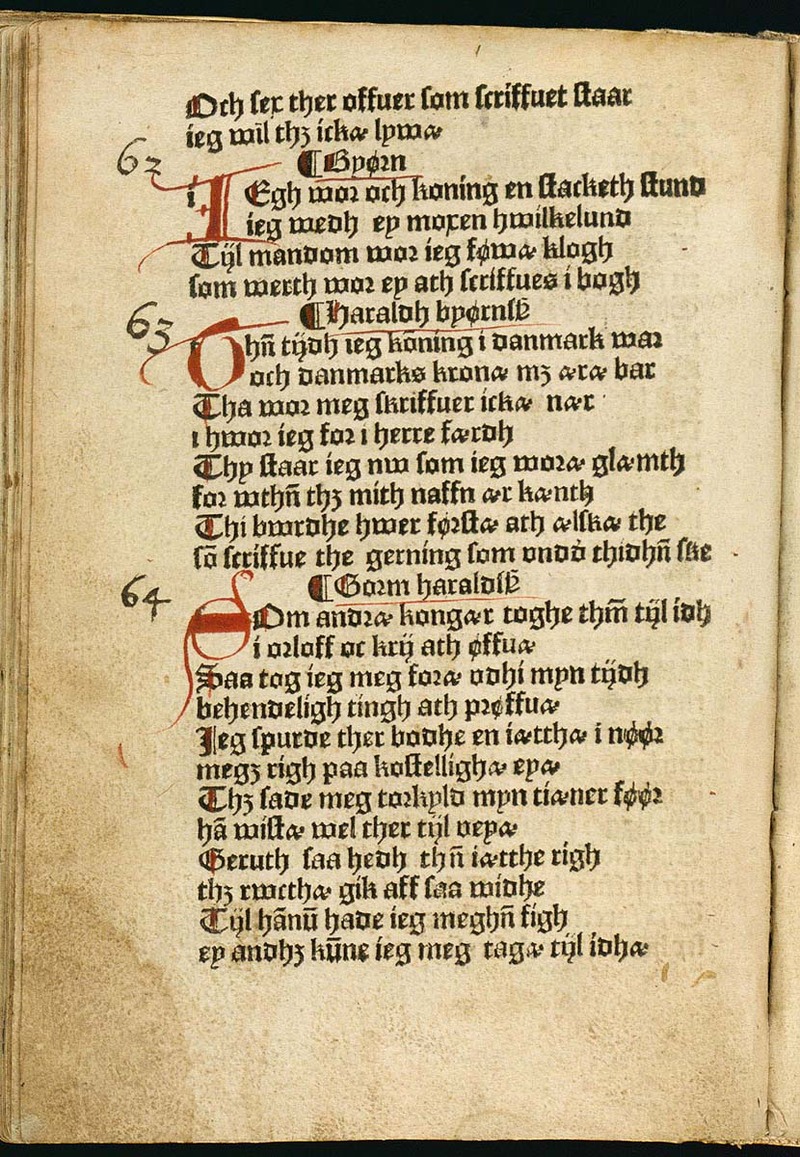 Och sex ther offuer som scriffuet staar
ieg wil thꝫ ickæ lywæ
62
¶Byørn
IEgh wor och koning en stacketh stund
ieg wedh ey moxen hwilkelund
Tijl mandom wor ieg føwæ klogh
som werth wor ey ath scriffues i bogh
63
¶Haraldh byørnsß
THn̄ tijdh ieg kōning i danmark war
och danmarks kronæ mꝫ æræ bar
Tha wor meg skriffuer ickæ nær
i hwor ieg for i herre færdh
Thy staar ieg nw som ieg woræ glæmth
for wthn̄ thꝫ mith naffn ær kænth
Thi bwrdhe hwer førstæ ath ælskæ the
sō scriffue the gerning som vndꝺ thidhn̄ ske
64
¶Gorm haraldsß
SOm andræ kongær toghe thm̄ tijl idh
i orloff oc krij ath øffuæ
Saa tog ieg meg foræ vdhi myn tijdh
behendeligh tingh ath prøffuæ
Jeg spurde ther bodhe en iætthæ i nøør
megꝫ righ paa kostellighæ eyæ
Thꝫ sade meg torkyld myn tiæner føør
hā wistæ wel ther tijl veyæ
Geruth saa hedh thn̄ iætthe righ
thꝫ rwcthæ gik aff saa widhe
Tijl hānū hade ieg meghn̄ figh
ey andhꝫ kūne ieg meg tagæ tijl idhæ